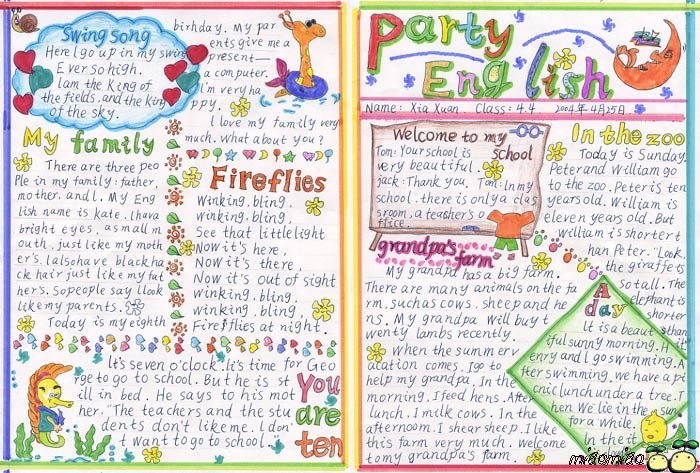 Swing song
Here I go up in my swing
Ever so high.
I am the King of
the fields, and the king
of the sky.
My family
There are three peo
ple in my family: father,
mother, and I. My Eng
lish name is Kate. I have
bright eyes, a small m
outh, just like my moth
er's. I also have black ha
ck hair just like my fat
hers. So people say I look
like my parents.
Today is my eighth
birthday. My par
ents give me a
present —
a computer.
I'm very ha
ppy.
I love my family very
much. What about you?
Fireflies
Winking, bling,
winking, bling.
See that little light
Now it's here,
Now it's there,
Now it's out of sight
winking, bling,
winking, bling
Fireflies at night.
It's seven o'clock. It's time for Geo
rge to go to school. But he is st
ill in bed. He says to his mot
her. "The teachers and the stu
dents don't like me. I don'
t want to go to school.
You
are
ten
Party
English
Name: Xia Xuan. Class: 4.4 2004年4月25日
Welcome to my
school
Tom: Your school is
very beautiful.
jack: Thank you. Tom: In my
school. there is only a clas
sroom, a teacher's o
ffice.
grandpa's
farm
My grandpa has a big farm.
There are many animals on the fa
rm, such as cows. sheep and he
ns. My grandpa will buy t
wenty lambs recently.
when the summer v
acation comes. I go to
help my grandpa. In the
morning. I feed hens. After
lunch. I milk cows. In the
afternoon. I shear sheep. I like
this farm very much. Welcome
to my grandpa's farm.
In the zoo
Today is Sunday.
Peter and William go
to the zoo. Peter is ten
years old. William is
eleven years old. But
William is shorter t
han Peter. "Look,
the giraffe is
so tall. The
elephant is
shorter
than
A
day
It is a beaut
iful sunny morning. H
enry and I go swimming. A
fter swimming. we have a pi
cnic lunch under a tree.
hen We lie in the sun
for a while.
In the
miaomiao